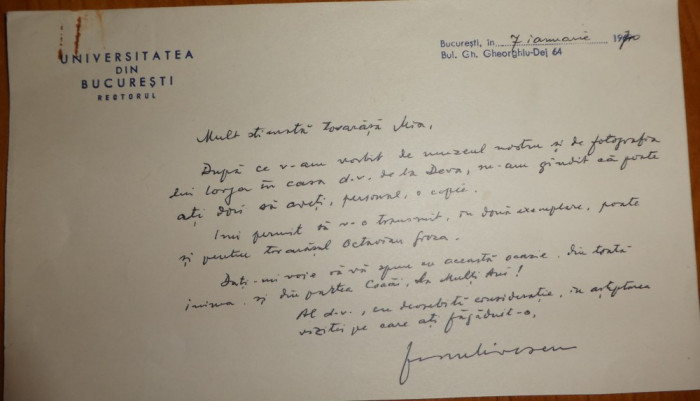 UNIVERSITATEA
DIN
BUCUREȘTI
RECTORUL
București, în 7 ianuarie 1970
Bul. Gh. Gheorghiu-Dej 64
Mult stimată tovarășă Mia,
După ce v-am vorbit de muzeul nostru și de fotografia
lui Iorga în casa d.v. de la Deva, m-am gîndit că poate
ați dori să aveți, personal, o copie.
Îmi permit să v-o transmit, în două exemplare, poate
și pentru tovarășul Octavian Groza.
Dați-mi voie să vă spun cu această ocazie, din toată
inima, și din partea, La Mulți Ani!
Al d-v., cu deosebită considerație, în așteptarea
vizitei pe care ați făgăduit-o,